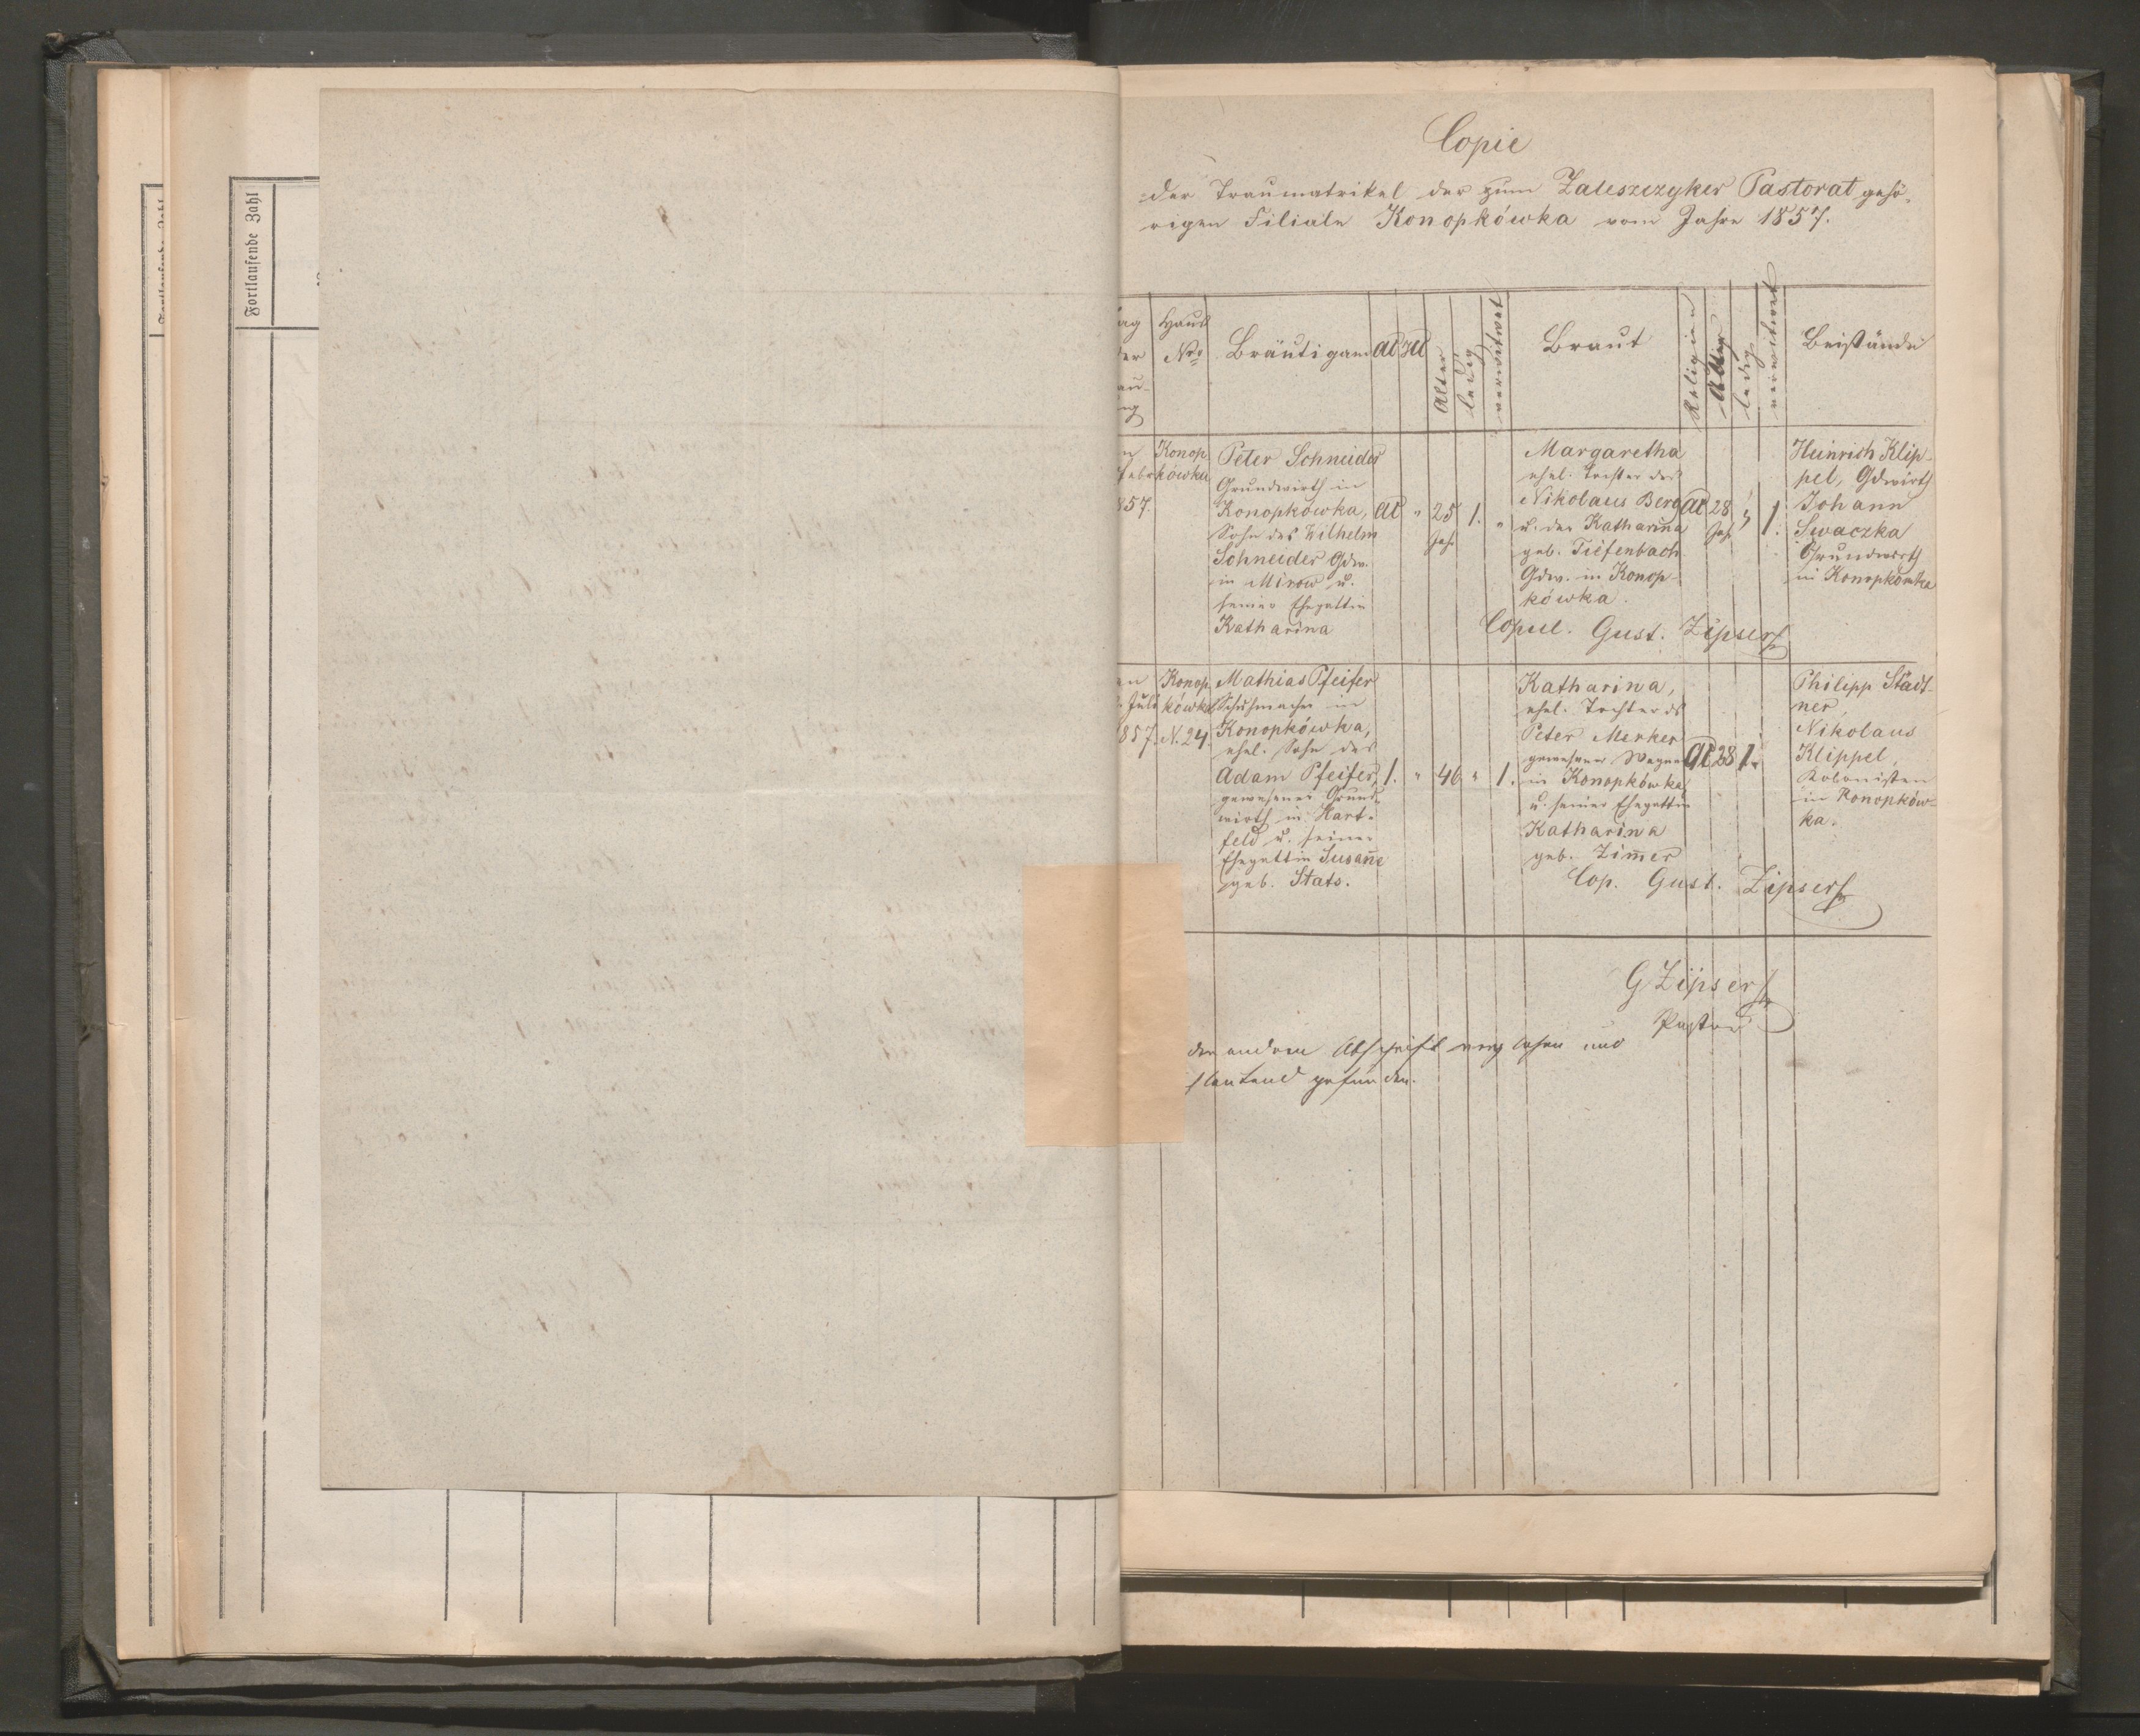 Fortlaufende Zahl
Copie
der Traumatrikel der zum Zaleszezyker Pastorat gehö-
rigen Filiale Konopkówka vom Jahre 1857.
Haus
Nro
Bräutigam
AC
HC
Alter
ledig
verwittwet
Braut
Religion
Alter
ledig
verwittwet
Beistände
857.
Konop-
kówka
Peter Schneider
Grundwirth in
Konopkowka,
Sohn des Wilhelm
Schneider Gdw.
in Mirow u.
seiner Ehegattin
Katharina
AC
"
25
Jahr
1.
"
Margaretha
ehel. Tochter des
Nikolaus Berg
u. der Katharina
geb. Tiefenbach
Gdw. in Konop-
kówka.
AC
28
Jahr
"
1.
Heinrich Klip-
pel, Gdwirth
Johann
Swaczka
Grundwirth
in Konopkowka
Copul. Gust. Zipser
Juli
857.
Konop-
kówka
N. 24.
Mathias Pfeifer
Schuhmacher in
Konopkówka,
ehel. Sohn des
Adam Pfeifer,
gewesener Grund-
wirth in Hart-
feld u. seiner
Ehegattin Susan̄e
geb. Stats.
1.
"
46
"
1.
Katharina,
ehel. Tochter ds
Peter Merker
gewesener Wagner
in Konopkówka
u. seiner Ehegattin
Katharina
geb. Zim̄er
AC
28
1.
Philipp Städt-
ner,
Nikolaus
Klippel,
Kolonisten
in Konopków-
ka.
Cop. Gust. Zipser
G Zipser
Pastor
der andern Abschrift verglichen und
lautend gefunden.